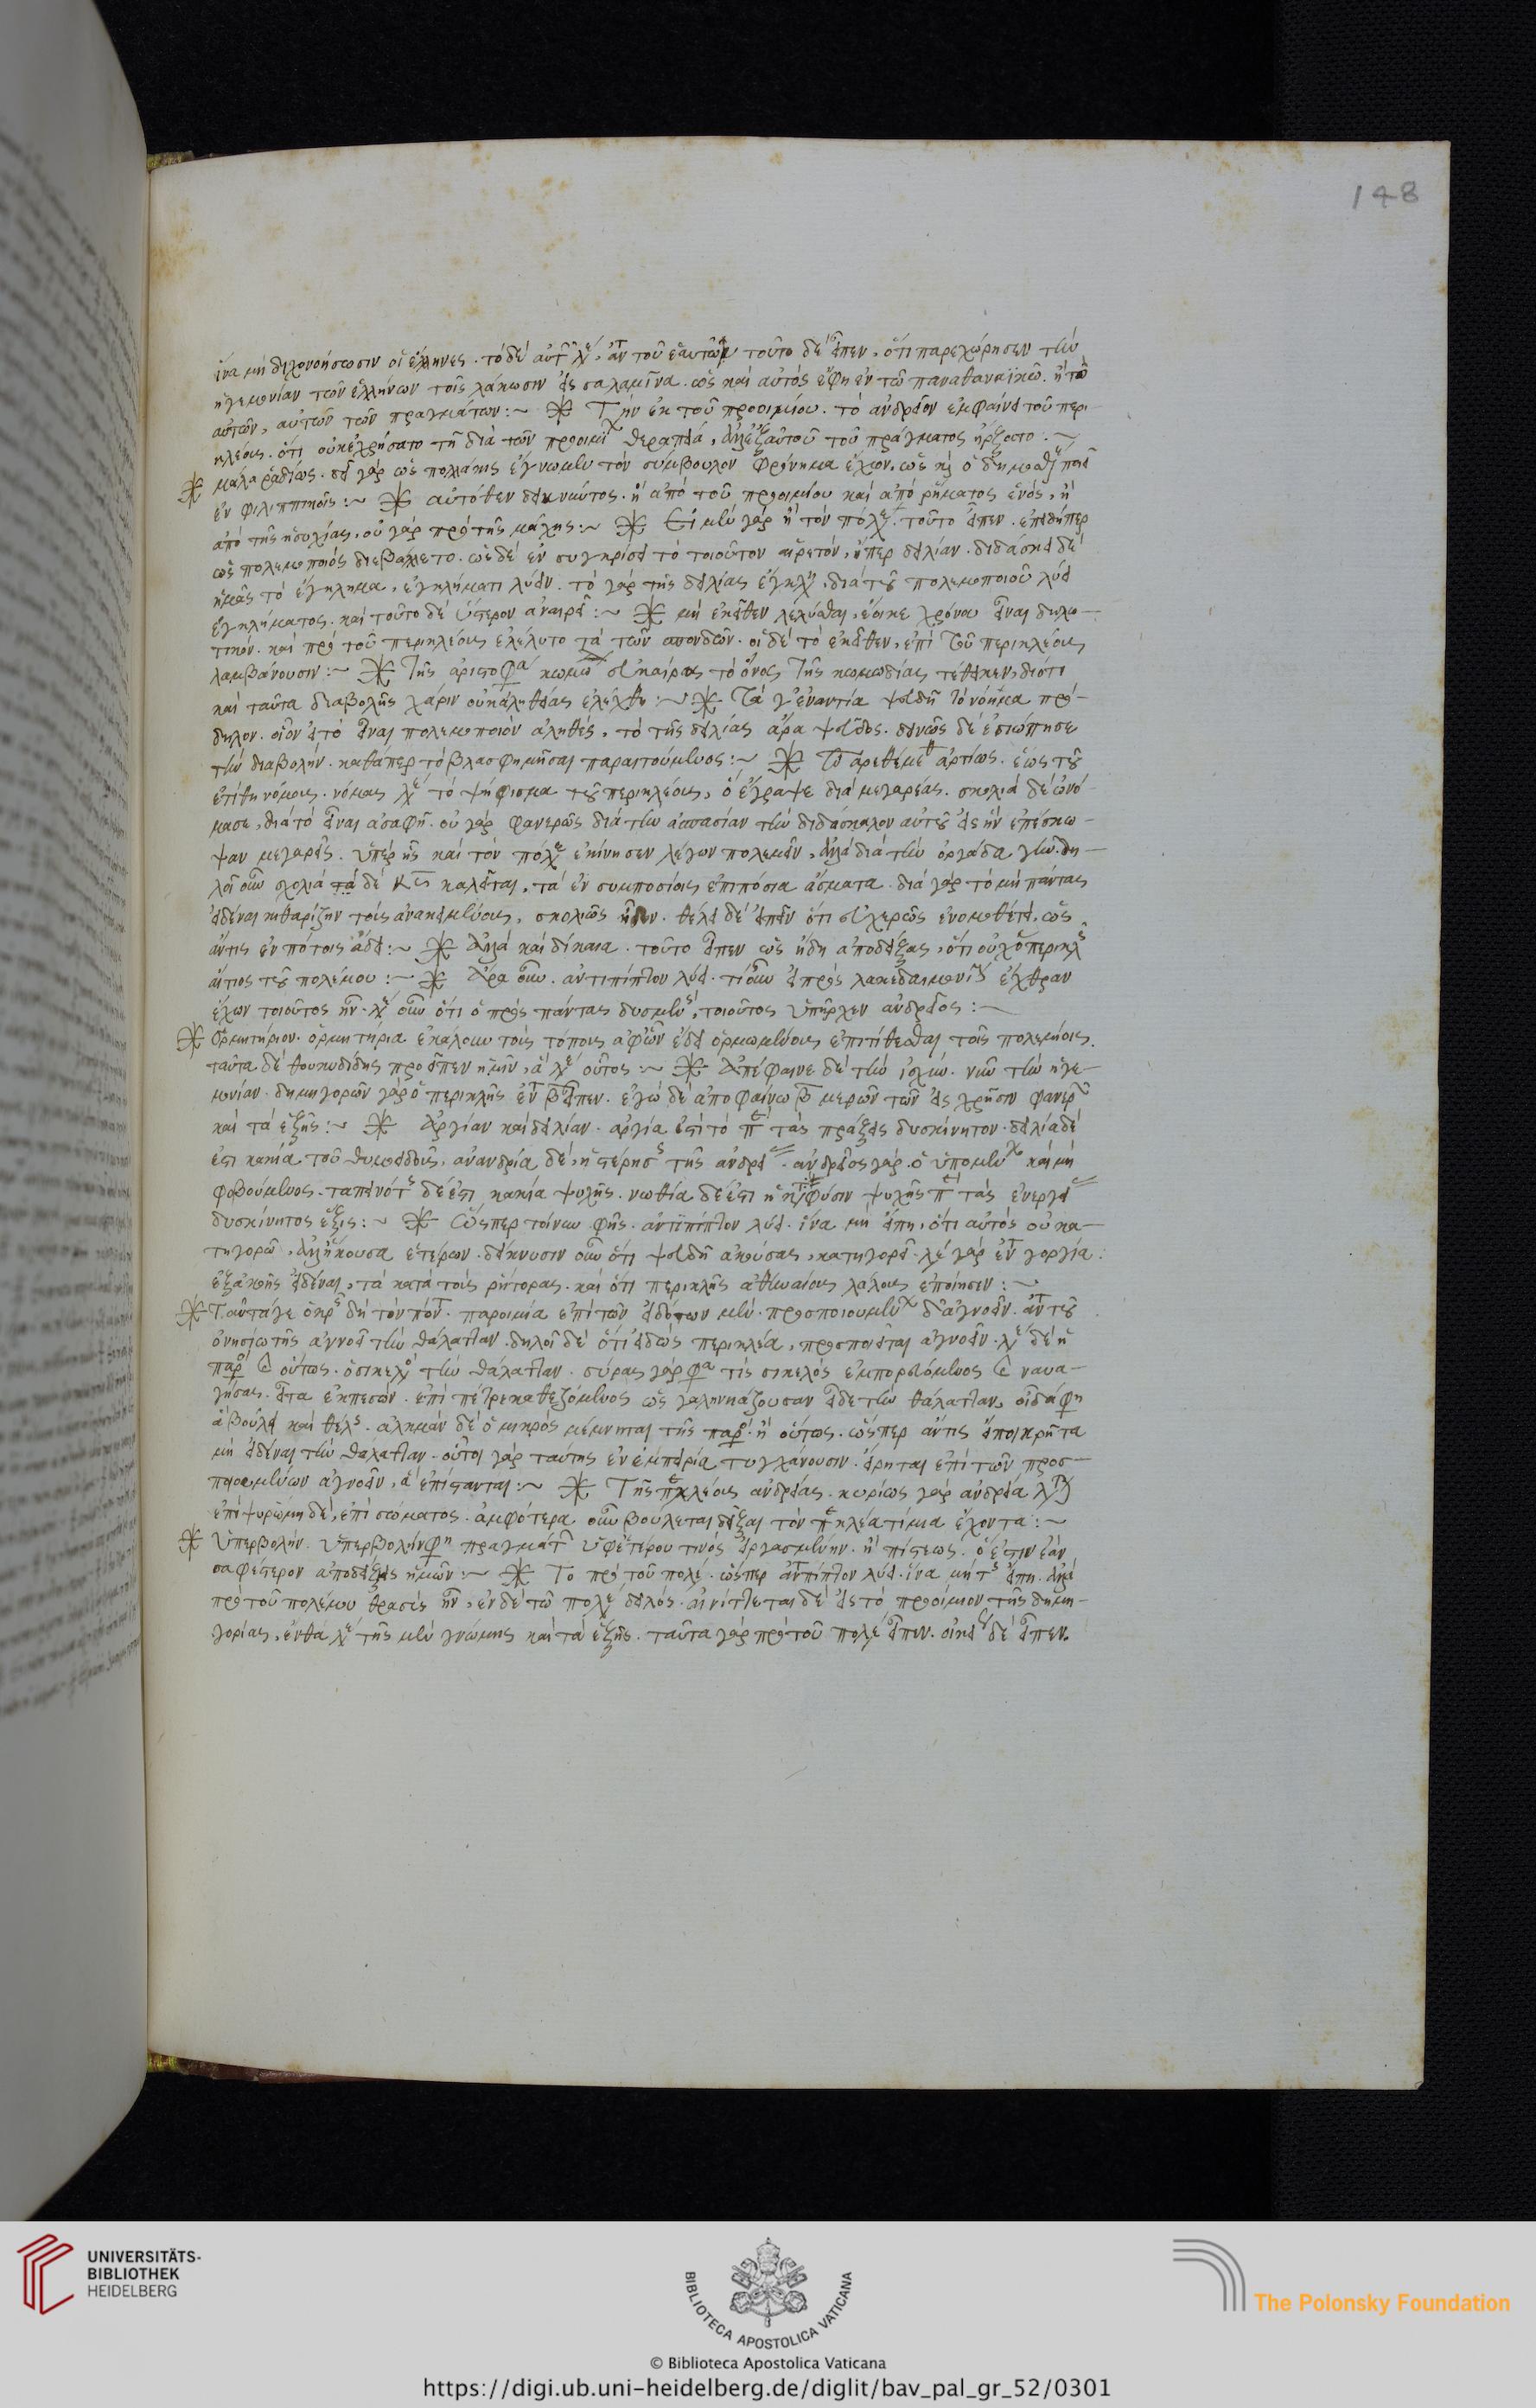 148
ἵνα μὴ διχονοήσωσιν οἱ ἕλληνες. τὸ δὲ αὐτ λέ, ἀντ τοῦ ἑαυτῶν τοῦτο δὲ εἶπεν, ὅτι παρεχώρησεν τὴν
ἡγεμονίαν τῶν ἑλλήνων τοῖς λάκωσιν εἰς σαλαμῖνα. ὡς καὶ αὐτὸς ἔφη ἐν τῶ παναθαναϊκῶ. ἢ τῶ
αὐτῶν, αὐτῶν τῶν πραγμάτων :~ Τὴν ἐκ τοῦ προοιμίου. τὸ ἀνδρεῖον ἐμφαίνει τοῦ περι-
κλέους. ὅτι οὐκ ἐχρήσατο τῆ διὰ τῶν προοιμι θεραπεία, ἀλλ' ἐξ αὐτοῦ τοῦ πράγματος ἤρξατο :~
μάλα ῥαδίως. δεῖ γὰρ ὡς πολλάκις ἔγνωμεν τὸν σύμβουλον φρόνημα ἔχειν. ὡς κὶ ὁ δημοσθ ποιεῖ
ἐν φιλιππικοῖς :~ αὐτόθεν δεικνύντος. ἢ ἀπὸ τοῦ προοιμίου καὶ ἀπὸ ῥήματος ἑνός, ἢ
ἀπὸ τῆς ἡσυχίας. οὐ γὰρ πρὸ τῆς μάχης :~ Εἰ μὲν γὰρ ἢ τὸν πόλε. τοῦτο εἶπεν. ἐπειδήπερ
ὡς πολεμοποιὸς διεβάλλετο. ὡς δὲ ἐν συγκρίσει τὸ τοιοῦτον αἱρετόν, ἤπερ δειλίαν. διδάσκει δὲ
ἡμᾶς τὸ ἔγκλημα, ἐγκλήματι λύειν. τὸ γὰρ τῆς δειλίας ἔγκλη, διὰ τοῦ πολεμοποιοῦ λύει
ἐγκλήματος. καὶ τοῦτο δὲ ὕστερον ἀναιρεῖ :~ μὴ ἐκεῖθεν λελύσθαι, ἔοικε χρόνου εἶναι δηλω-
τικόν. καὶ πρὸ τοῦ περικλέους ἐλέλυτο τὰ τῶν σπονδῶν. οἱ δὲ τὸ ἐκεῖθεν, ἐπὶ τοῦ περικλέους
λαμβάνουσιν :~ Τῆς ἀριστοφα κωμω εὐκαίρως τὸ ὄνος τῆς κωμωδίας τέθεικεν, διότι
καὶ ταῦτα διαβολῆς χάριν οὐκ ἀληθείας ἐλέχθη :~ Τά γ' ἐναντία ψευδῆ τὸ νόημα πρό-
δηλον. οἷον εἰ τὸ εἶναι πολεμοποιὸν ἀληθές, τὸ τῆς δειλίας ἄρα ψεῦδος. δεινῶς δὲ ἐσιώπησε
τὴν διαβολήν. καθάπερ τὸ βλασφημῆσαι παραιτούμενος :~
ἐτίθη νόμους. νόμους λέ τὸ ψήφισμα τοῦ περικλέους, ὃ ἔγραψε διὰ μεγαρέας. σκολιὰ δὲ ὠνό-
μασε, διὰ τὸ εἶναι ἀσαφῆ. οὐ γὰρ φανερῶς διὰ τὴν ἀσπασίαν τὴν διδάσκαλον αὐτοῦ εἰς ἣν ἐπέσκω-
ψαν μεγαρεῖς. ὑπὲρ ἧς καὶ τὸν πόλε ἐκίνησεν λέγων πολεμεῖν, ἀλλὰ διὰ τὴν ὀργάδα γῆν. δη-
λοῖ οὖν σχολιὰ τὰ δὲ καλεῖται, τὰ ἐν συμποσίοις ἐπιπόσια ἄσματα. διὰ γὰρ τὸ μὴ πάντας
εἰδέναι κιθαρίζειν τοῖς ἀνακειμένοις, σκολιῶς ᾖδον. θέλει δὲ εἰπεῖν ὅτι εὐχερῶς ἐνομοθέτει, ὡς
ἄν τις ἐν πότοις ἄδει :~ Ἀλλὰ καὶ δίκαια. τοῦτο εἶπεν ὡς ἤδη ἀποδείξας, ὅτι οὐχ ὁ περικλ
αἴτιος τοῦ πολέμου :~ Ἆρα οὖν. ἀντιπίπτον λύει. τί οὖν εἰ πρὸς λακεδαιμονί ἔχθραν
ἔχων τοιοῦτος ἦν. λέ οὖν ὅτι ὁ πρὸς πάντας δυσμεν, τοιοῦτος ὑπῆρχεν ἀνδρεῖος :~
ὁρμητήριον. ὁρμητήρια ἐκάλουν τοὺς τόπους ἀφ' ὧν ἔδει ὁρμωμένους ἐπιτίθεσθαι τοῖς πολεμίοις.
ταῦτα δὲ θουκυδίδης προεῖπεν ἡμῖν, ἃ λέ οὗτος :~ Ἀπέφαινε δὲ τὴν ἰσχύν. νῦν τὴν ἡγε-
μονίαν. δημηγορῶν γὰρ ὁ περικλῆς ἐν β εἶπεν. ἐγὼ δὲ ἀποφαίνω β μερῶν τῶν εἰς χρῆσιν φανερ
καὶ τὰ ἑξῆς :~ Ἀργίαν καὶ δειλίαν. ἀργία ἐστὶ τὸ π τὰς πράξεις δυσκίνητον. δειλία δέ
ἐστι κακία τοῦ θυμοειδοῦς, ἀνανδρία δέ, ἡ στέρησ τῆς ἀνδρεί. ἀνδρεῖος γὰρ ὁ ὑπομέν καὶ μὴ
φοβούμενος. ταπεινότ δέ ἐστι κακία ψυχῆς. νωθία δέ ἐστι ἡ κ φύσιν ψυχῆς π τὰς ἐνεργεί
δυσκίνητος ἕξις :~ Ὥσπερ τοίνυν φής. ἀντιπίπτον λύει. ἵνα μὴ εἴπη, ὅτι αὐτὸς οὐ κα-
τηγορῶ, ἀλλ' ἤκουσα ἑτέρων. δείκνυσιν οὖν ὅτι ψευδῆ ἀκούσας, κατηγορεῖ. λέ γὰρ ἐν γοργία.
ἐξ ἀκοῆς εἰδέναι, τὰ κατὰ τοὺς ῥήτορας. καὶ ὅτι περικλῆς ἀθηναίους λάλους ἐποίησεν :~
Ταῦτά γε δὴ τὸν πόντ. παροιμία ἐπὶ τῶν εἰδότων μέν. προσποιουμέν δ' ἀγνοεῖν. ἀντ τοῦ
ὀνησιώτης ἀγνοεῖ τὴν θάλατταν. δηλοῖ δὲ ὅτι εἰδὼς περικλέα, προσποιεῖται ἀγνοεῖν. λέ δὲ ἡ
παρ οὕτως. ὁ σικελὸ τὴν θάλατταν. σύρας γάρ φα τίς σικελὸς ἐμπορευόμενος ναυα-
γήσας. εἶτα ἐκπεσὼν. ἐπὶ πέτρ καθεζόμενος ὡς γαληνιάζουσαν εἶδε τὴν θάλατταν, οἶδά φη
ἃ βούλει καὶ θέλ. ἀλκμὰν δὲ ὁ μικρὸς μέμνηται τῆς παρ. ἢ οὕτως. ὥσπερ ἄν τις εἴποι κρῆτα
μὴ εἰδέναι τὴν θάλατταν. οὗτοι γὰρ ταύτης ἐν ἐμπειρία τυγχάνουσιν. εἴρηται ἐπὶ τῶν προσ-
ποιουμένων ἀγνοεῖν, ἃ ἐπίστανται :~ Τῆς πκλέους ἀνδρείας. κυρίως γὰρ ἀνδρεία λ
ἐπὶ ψυ ῥώμη δέ, ἐπὶ σώματος. ἀμφότερα οὖν βούλεται δεῖξαι τὸν πκλέα τίμια ἔχοντα :~
ὑπερβολήν. ὑπερβολήν φη πραγμάτ ὑφ' ἑτέρου τινὸς εἰργασμένην. ἢ πίστεως. ὅ ἐστιν ἐὰν
σαφέστερον ἀποδείξεις ἡμῶν :~ Τὸ πρὸ τοῦ πολέ. ὥσπερ ἀντιπίπτον λύει. ἵνα μή τ εἴπη. ἀλλὰ
πρὸ τοῦ πολέμου θρασὺς ἦν, ἐν δὲ τῶ πολέ δειλός. αἰνίττεται δὲ εἰς τὸ προοίμιον τῆς δημη-
γορίας, ἔνθα λέ τῆς μὲν γνώμης καὶ τὰ ἑξῆς. ταῦτα γὰρ πρὸ τοῦ πολέ εἶπεν. δὲ εἶπεν.
UNIVERSITÄTS-
BIBLIOTHEK
HEIDELBERG
BIBLIOTECA APOSTOLICA VATICANA
The Polonsky Foundation
© Biblioteca Apostolica Vaticana
https://digi.ub.uni-heidelberg.de/diglit/bav_pal_gr_52/0301